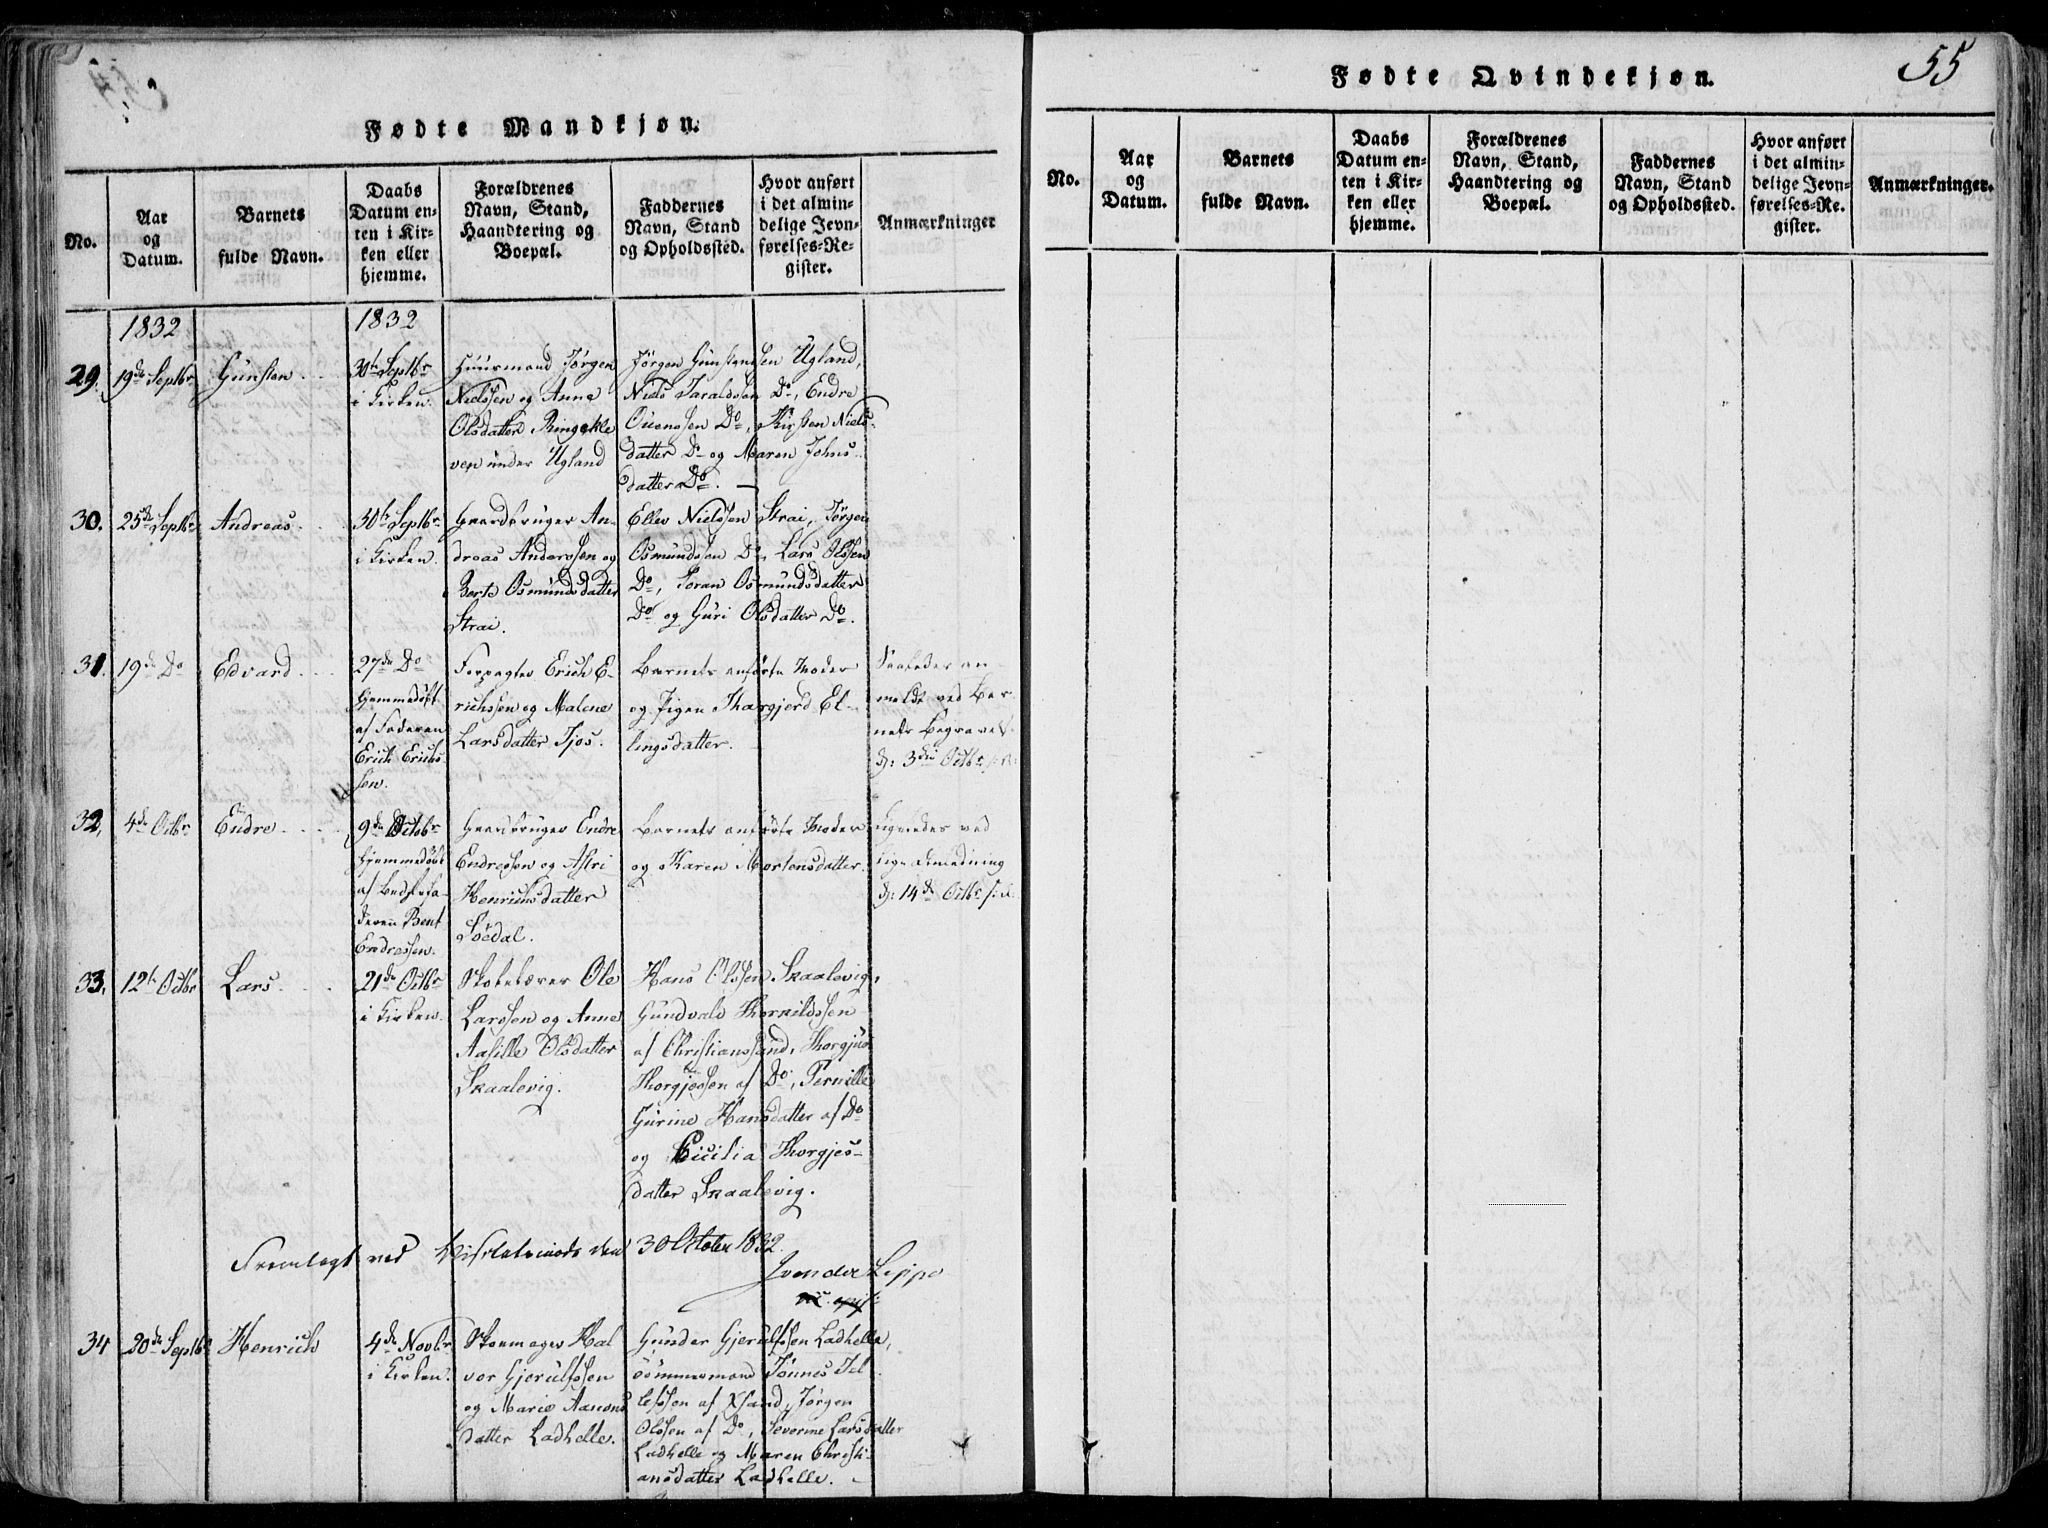 55
Fødte Mandkjøn.
No.
Aar
og
Datum.
Barnets
fulde Navn.
Daabs
Datum en-
ten i Kir-
ken eller
hjemme.
Forældrenes
Navn, Stand,
Haandtering og
Boepæl.
Faddernes
Navn, Stand
og Opholdssted.
Hvor anført
i det almin-
delige Jevn-
førelses-Re-
gister.
Anmærkninger
1832
1832
29.
19de Septbr
Gunsten
30te Septbr
i Kirken.
Huusmand Jørgen
Nielssen og Anne
Olsdatter Ringekle
ven under Ugland
Jørgen Gunstenssen Ugland,
Niels Taraldssen Do, Endre
Ouenssen Do, Kirsten Niels-
datter Do og Maren Johns-
datter Do.
30.
25de Septbr
Andreas
30te Septbr
i Kirken.
Gaardbruger An-
dreas Anderssen og
Berte Osmundsdatter
Strai.
Ellev Nielssen Strai, Jørgen
Osmundssen Do, Lars Olssen
Do, Soran Osmundsdatter
Do og Guri Olsdatter Do.
31.
19de Do
Edvard
27de Do
Hjemmedøbt
af Faderen
Erich Erichs-
sen.
Forpagter Erich E-
richssen og Malene
Larsdatter Tjos.
Barnets anførte Moder
og Pigen Thorgjerd El-
lingsdatter.
an-
meldt ved Bar-
nets Begravel-
d: 3die Octbr
32.
4de Octbr
Endre
9de Octobr
Hjemmedøbt
af Bedstefa-
deren Bent
Endressen.
Gaardbruger Endre
Endressen og Astri
Henrichsdatter
Søedal.
Barnets anførte Moder
og Karen Mortensdatter.
ved
d: 14de Octbr
33.
12te Octbr
Lars
21de Octbr
i Kirken.
Skolelærer Ole
Larssen og Anne
Aasille Olsdatter
Skaalevig.
Hans Olssen Skaalevig,
Gundvald Thorkildssen
af Christianssand, Thorgjus
Thorgjussen af Do, Pernille
Gurine Hansdatter af Do
og Cicilia Thorgjus-
datter Skaalevig.
Fremlagt ved Visitatsmode den 30 October 1832.
34
20de Septbr
Henrich
4de Novbr
i Kirken.
Skoemager Hal
vor Gjerulfssen
og Marie Aanons
datter Ladhelle.
Gunder Gjerulfssen Ladhelle,
Tømmermand Tønnes Tel
lefssen af Xsand, Jørgen
Olssen af Do, Severine Larsdatter
Ladhelle og Maren Christi-
ansdatter Ladhelle.
Fødte Qvindekjøn.
No.
Aar
og
Datum.
Barnets
fulde Navn.
Daabs
Datum en-
ten i Kir-
ken eller
hjemme.
Forældrenes
Navn, Stand,
Haandtering og
Boepæl.
Faddernes
Navn, Stand
og Opholdssted.
Hvor anført
i det almin-
delige Jevn-
førelses-Re-
gister.
Anmærkninger.